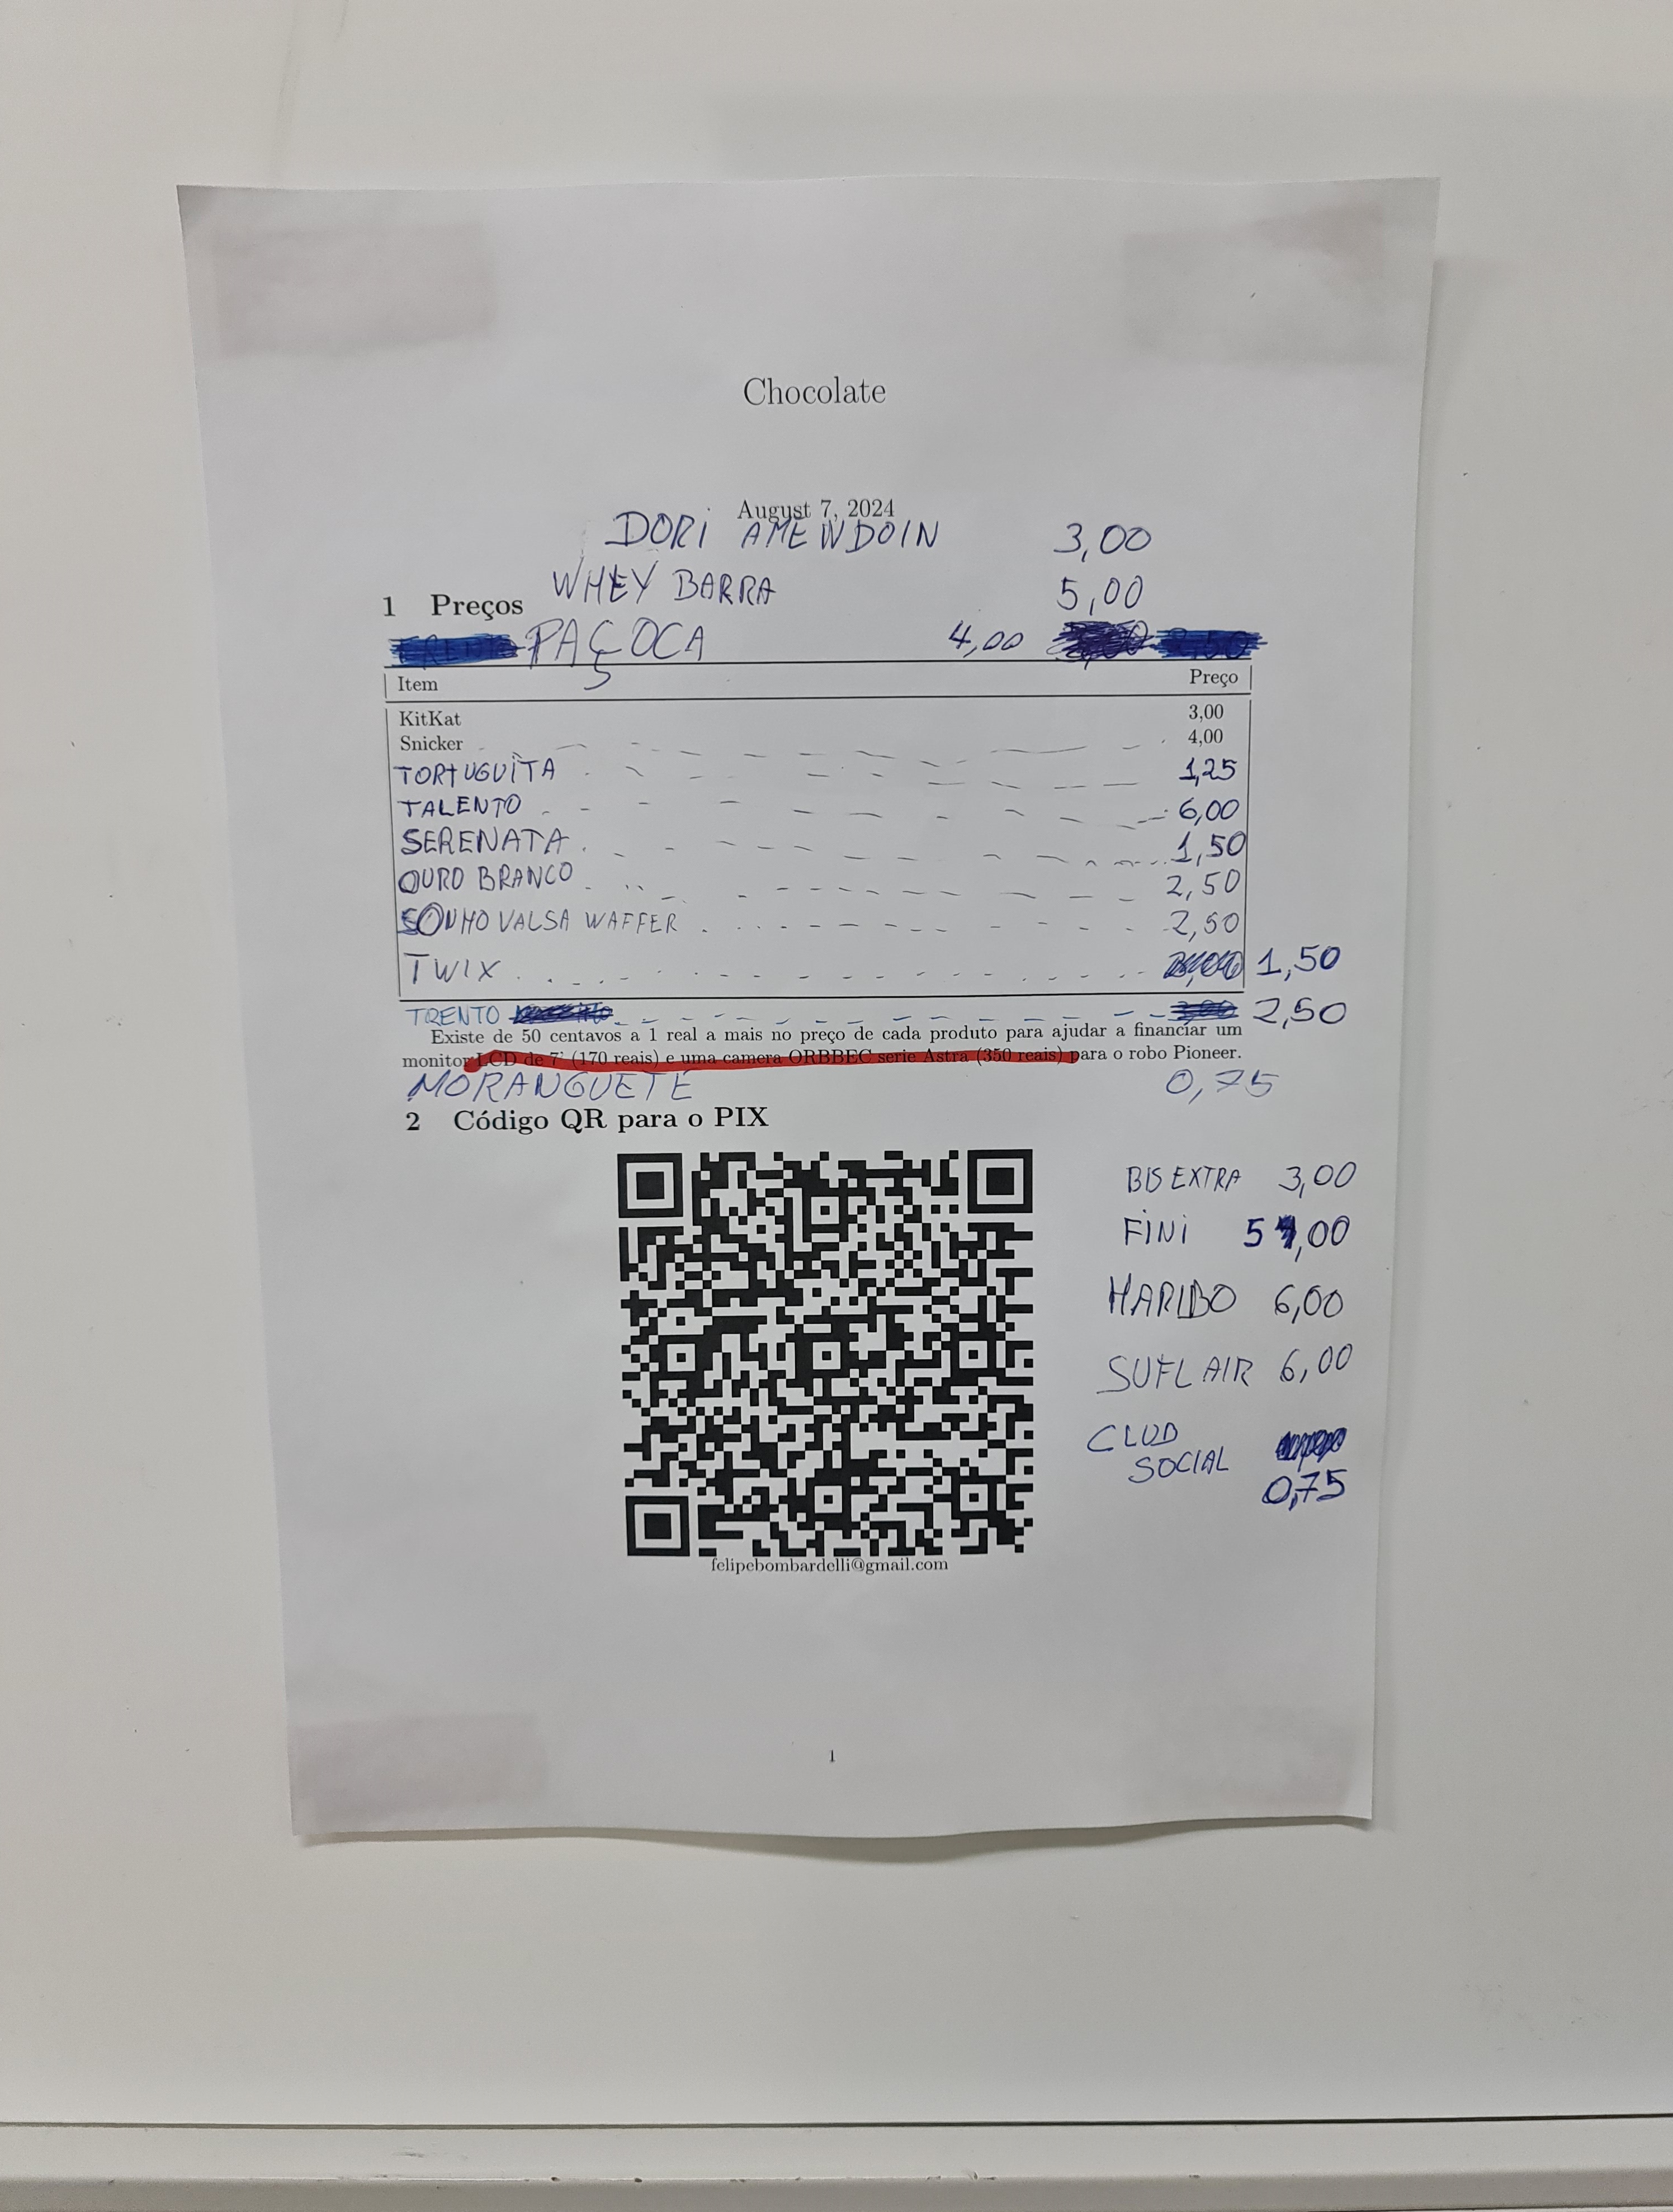 Chocolate
August 7, 2024
DORI AMEWDOIN 3,00
WHEY BARRA 5,00
1 Preços
PAÇOCA 4,00
Item Preço
KitKat 3,00
Snicker 4,00
TORTUGUITA 1,25
TALENTO 6,00
SERENATA 1,50
OURO BRANCO 2,50
SONHO VALSA WAFFER 2,50
TWIX 1,50
TRENTO 2,50
Existe de 50 centavos a 1 real a mais no preço de cada produto para ajudar a financiar um
monitor LCD de 7' (170 reais) e uma camera ORBBEC serie Astra (350 reais) para o robo Pioneer.
MORANGUETE 0,75
2 Código QR para o PIX
BIS EXTRA 3,00
FINI 5,00
HARIBO 6,00
SUFLAIR 6,00
CLUD
SOCIAL
0,75
felipebombardelli@gmail.com
1